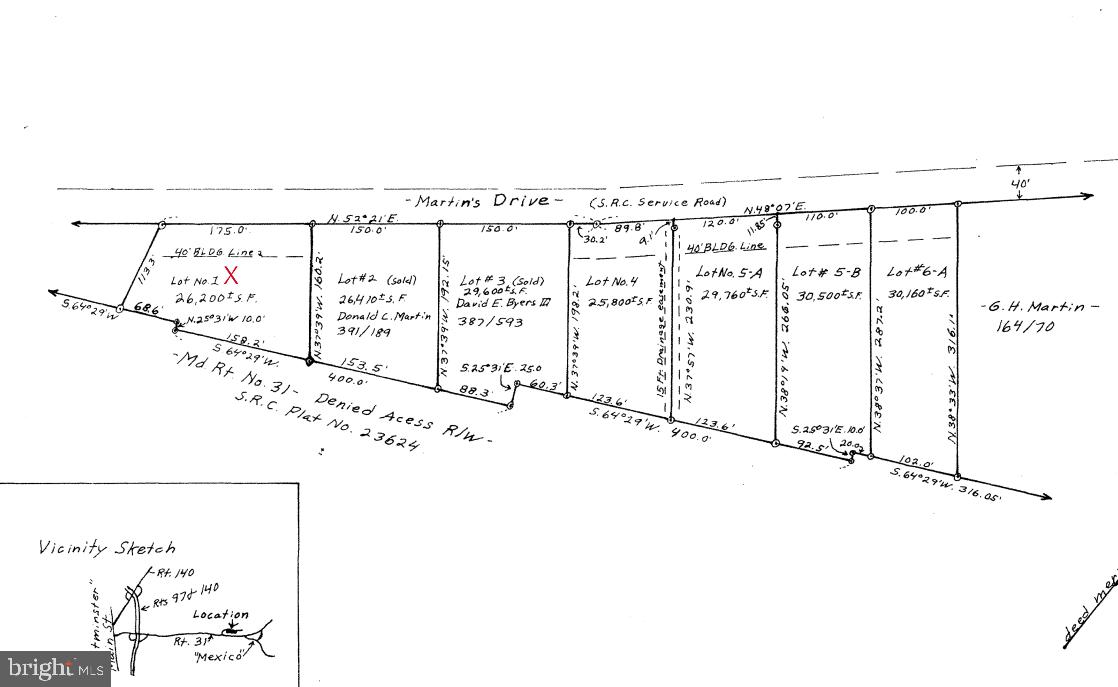 40'
-Martin's Drive- (S.R.C. Service Road)
N.52°21'E.
N.48°07'E.
175.0'
150.0'
150.0'
30.2'
89.8'
9.1'
120.0'
11.85'
110.0'
100.0'
113.3'
40' BLDG. Line
Lot No.1 X
26,200±S.F.
N.37°39'W. 160.2'
Lot#2 (Sold)
26,410±S.F.
Donald C. Martin
391/189
N.37°39'W. 192.15'
Lot #3 (Sold)
29,600±S.F.
David E. Byers III
387/593
N.37°39'W. 198.2'
Lot No.4
25,800±S.F.
15 Ft. Drainage easement
N.37°57'W. 230.9'
40' BLDG. Line
Lot No.5-A
29,760±S.F.
N.38°19'W. 266.05'
Lot # 5-B
30,500±S.F.
N.38°37'W. 287.2'
Lot #6-A
30,160±S.F.
N.38°33'W. 316.1'
-G.H. Martin-
164/70
S.64°29'W
68.6'
N.25°31'W 10.0'
158.2'
S 64°29'W.
153.5'
400.0'
88.3'
S.25°31'E. 25.0
60.3'
123.6'
S.64°29'W. 400.0'
123.6'
92.5'
S.25°31'E. 10.0'
20.02
102.0'
S.64°29'W. 316.05'
-Md Rt No. 31- Denied Acess R/W-
S.R.C. Plat No. 23624
Vicinity Sketch
Rt. 140
Rts 97& 140
Location
Rt. 31
"Mexico"
tminster"
Main St.
deed mer
bright MLS